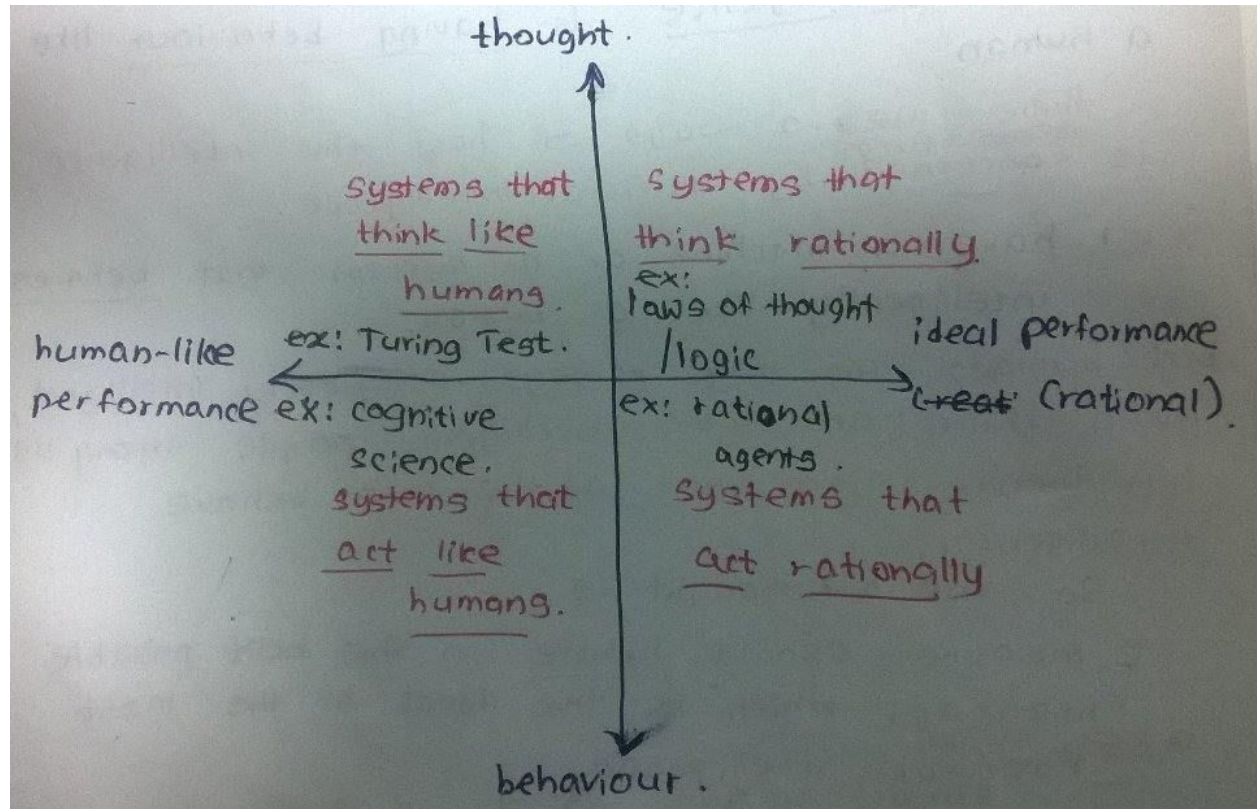 thought.
systems that
think like
humans.
ex: Turing Test.
systems that
think rationally.
ex:
laws of thought
/logic
human-like
performance
ideal performance
(rational).
ex: cognitive
science.
systems that
act like
humans.
ex: rational
agents.
systems that
act rationally
behaviour.